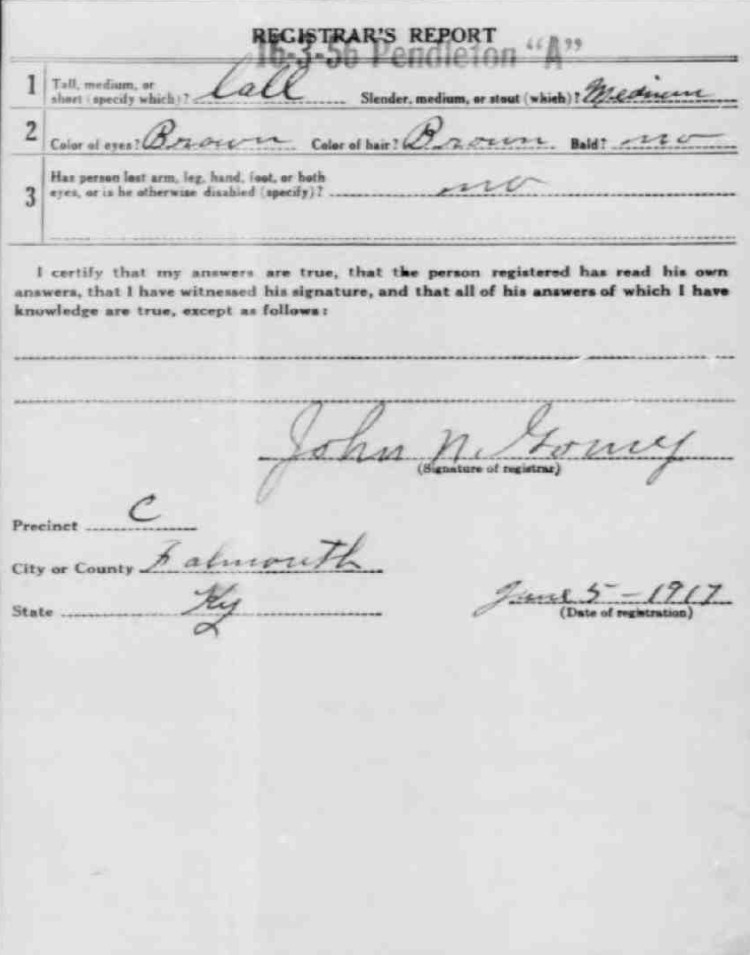 REGISTRAR'S REPORT
16-3-56 Pendleton "A"
1 Tall, medium, or short (specify which)? Tall Slender, medium, or stout (which)? Medium
2 Color of eyes? Brown Color of hair? Brown Bald? no
3 Has person lost arm, leg, hand, foot, or both
eyes, or is he otherwise disabled (specify)? no
I certify that my answers are true, that the person registered has read his own
answers, that I have witnessed his signature, and that all of his answers of which I have
knowledge are true, except as follows:
John N.
(Signature of registrar)
Precinct C
City or County Falmouth
State Ky
June 5 - 1917
(Date of registration)